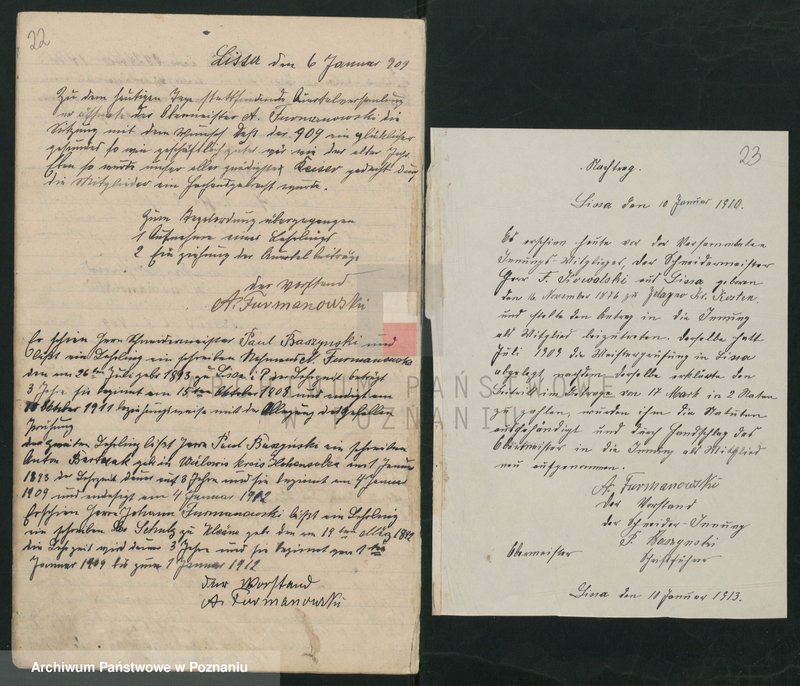 22
Lissa den 6 Januar 909
Zu dem heutigen Tage stattfindende Quartelversamlung
er öffnete der Obermeister A. Furmanowski die
Sitzung mit dem Wunsch daß das 909 ein glücklicher
gesundes so wie geschäftlich guter wie der alter Jahr
Eben so wurde unser aller gnädigster Keiser gedacht
die Mitglieder ein Hoch wurde.
Zum Tagesordung übergegangen
1 Aufnehme einer Lehrlings
2 Ein ziehung der Quartel beiträge
der Vorstand
A. Furmanowski
Er schien Herr Schneidermeister Paul Baszynski und
läßt ein Lehrling ein schreiben Nahmens A Furmanowski
den am 26ten Juli geb 1893 zu Lissa i/P die Lehrzeit beträgt
3 Jahre sie beginnt am 15ten Oktober 1908 und endigt am
Oktober 1911 beziehungsweise mit der Ablegung des Gesellen
Prüfung
den zweiten Lehrling läßt Herr Paul Baszynski ein schreiben
Anton geb in kreis am 1 Januar
1893 die Lehrzeit dauert auf 3 Jahre und sie beginnt am 4 Januar
1909 und endigt am 4 Januar 1912
Erschien Herr Johann Furmanowski läßt ein Lehrling
ein schreiben Schulz zu geb den am 19ten März
die Lehrzeit wird dauern 3 Jahre und sie beginnt von 1
Januar 1909 bis zum 1 Januar 1912
der Vorstand
A. Furmanowski
23
Nachtrag.
Lissa den 10 Januar 1910.
Es erschien heute vor der Versammelten
Innungs Mitglieder, der Schneidermeister
Herr F. Nowalski aus Lissa geboren
den 16 November 1876 zu Kr. Kosten.
und stellte den Antrag in die Innung
als Mitglied beizutreten. derselbe hatt
Juli 1909 die Meisterprüfung in Lissa
abgelegt, nachdem derselbe erklärte den
Beitritt im Betrage von 17 Mark in 2 Raten
zu zahlen, wurden ihm die Statuten
ausgehändigt und durch Handschlag des
Obermeister in die Innung als Mitglied
neu aufgenommen.
A. Furmanowski
Der Vorstand
der Schneider-Innung
P. Baszynski
Obermeister
Schriftführer
Lissa den 10 Januar 1913.
ARCHIWUM PAŃSTWOWE
W POZNANIU
Archiwum Państwowe w Poznaniu